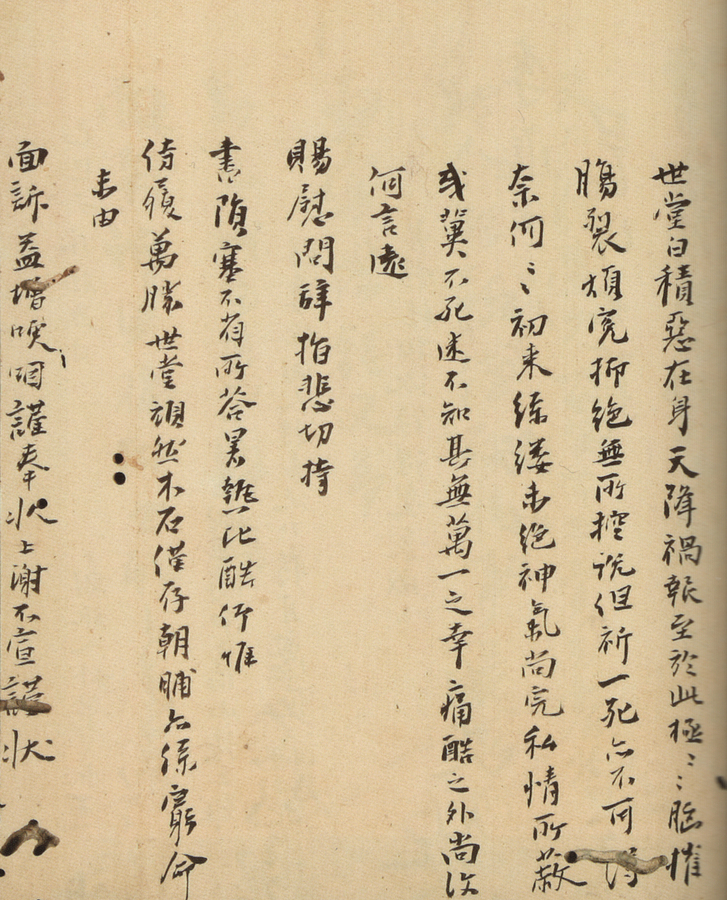 世堂白積惡在身天降禍報至於此極〻腦摧
腸裂煩冤抑絶無所控訴但祈一死亦不可得
奈何〻初来綿縷未絶神氣尚完私情所蔽
或冀不死迷不知其無萬一之幸痛酷之外尚復
何言遠
賜慰問辭指悲切持
書隕塞不省所答暑熱比酷伏惟
侍履萬勝世堂頑然木石僅存朝晡亦係窮命
未由
面訴益增哽咽謹奉狀上謝不宣謹狀